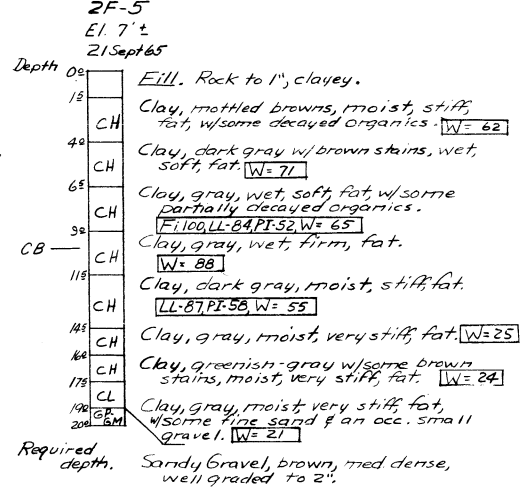 2F-5
El. 7' ±
21 Sept 65
Depth
0.0
Fill. Rock to 1", clayey.
1.5
CH
Clay, mottled browns, moist, stiff,
fat, w/some decayed organics. W= 62
4.0
CH
Clay, dark gray w/brown stains, wet,
soft, fat. W= 71
6.5
CH
Clay, gray, wet, soft, fat, w/some
partially decayed organics.
Fi100, LL-84, PI-52, W= 65
9.0
CB
CH
Clay, gray, wet, firm, fat.
W= 88
11.5
CH
Clay, dark gray, moist, stiff, fat.
LL-87, PI-58, W= 55
14.5
CH
Clay, gray, moist, very stiff, fat. W=25
16.0
CH
Clay, greenish-gray w/some brown
stains, moist, very stiff, fat. W= 24
17.5
CL
Clay, gray, moist, very stiff, fat,
w/some fine sand & an occ. small
gravel. W= 21
19.0
GP-
GM
20.0
Required
depth.
Sandy Gravel, brown, med. dense,
well graded to 2".